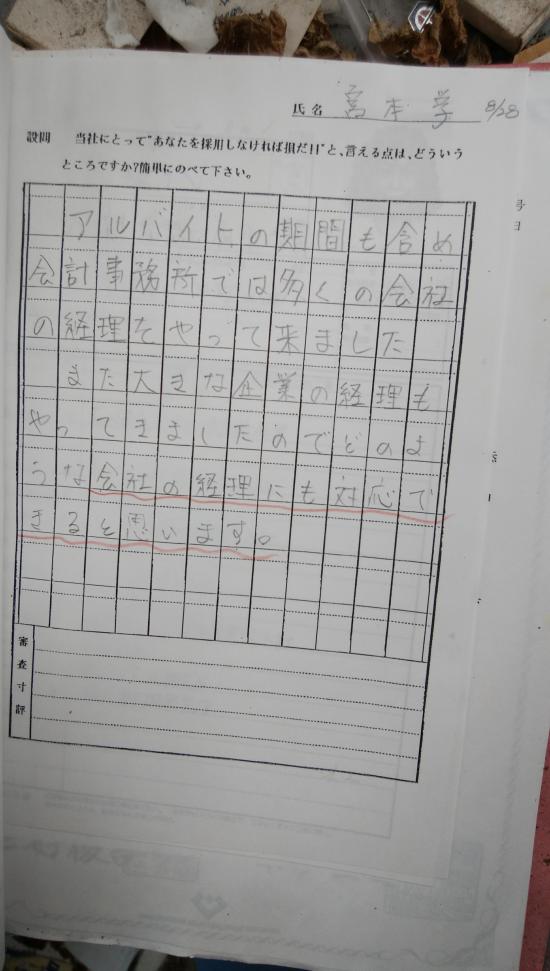 氏名 宮本 学 8/28
設問 当社にとって"あなたを採用しなければ損だ!!"と、言える点は、どういう
ところですか?簡単にのべて下さい。
アルバイトの期間も含め
会計事務所では多くの会社
の経理をやって来ました
また大きな企業の経理も
やってきましたのでどのよ
うな会社の経理にも対応で
きると思います。
審査寸評